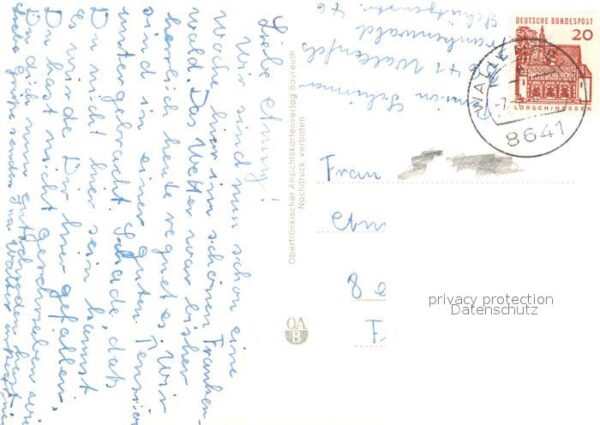 Liebe Anny!
Wir sind nun schon eine
Woche hier im schönen Franken-
wald. Das Wetter war bisher
herrlich heute regnet es. Wir
sind in einer guten Pension
untergebracht Schade daß
Du nicht hier sein kannst
Es würde Dir hier gefallen.
Du hast nicht geschrieben wie
Du dich nun entschieden
Liebe Grüße senden
Oberfränkisches Ansichtskartenverlag Bayreuth
Nachdruck verboten
OA
B
41 Wallenfels
Frankenwald
Schützenstr. 46
DEUTSCHE BUNDESPOST
20
LORSCH/HESSEN
WALLENFELS
8641
Frau
privacy protection
Datenschutz